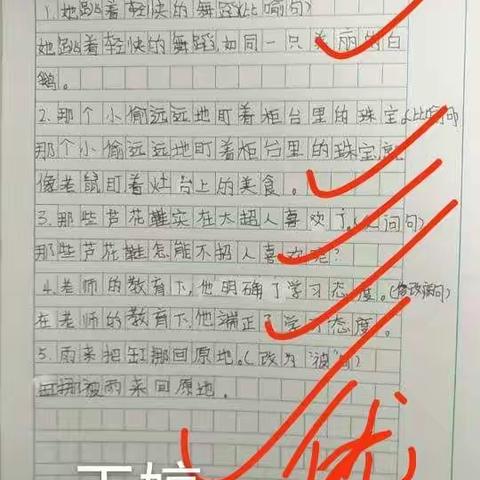 1.她跳着轻快的舞蹈(比喻句)
她跳着轻快的舞蹈,如同一只美丽的白
鹅。
2.那个小偷远远地盯着柜台里的珠宝。(比喻句)
那个小偷远远地盯着柜台里的珠宝就
像老鼠盯着灶台上的美食。
3.那些芦花鞋实在太招人喜欢了。(反问句)
那些芦花鞋怎能不招人喜欢呢?
4.老师的教育下,他明确了学习态度。(修改病句)
在老师的教育下,他端正了学习态度。
5.雨来把缸挪回原地。(改为"被"句)
缸挪被雨来回原地。
优